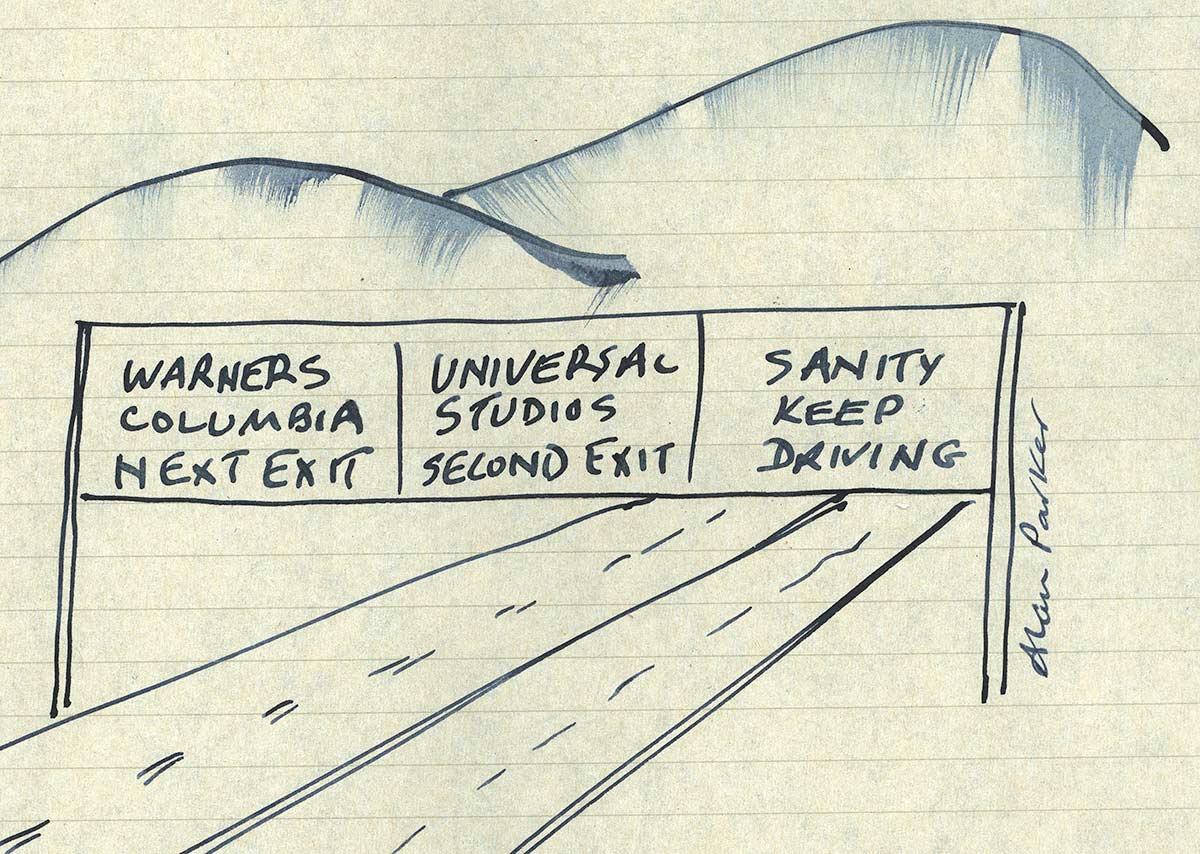 WARNERS
COLUMBIA
NEXT EXIT
UNIVERSAL
STUDIOS
SECOND EXIT
SANITY
KEEP
DRIVING
Alan Parker